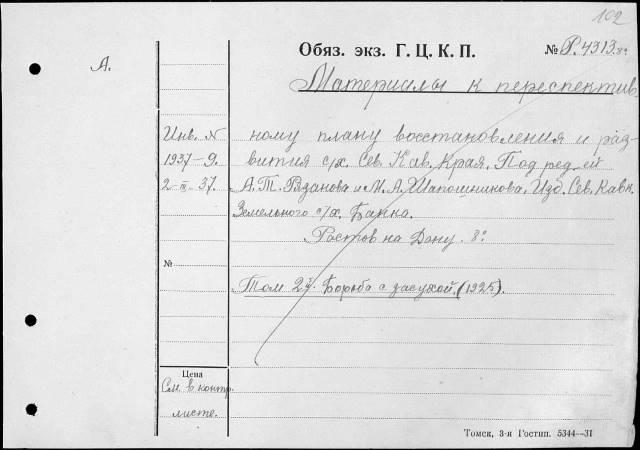 102
Обяз. экз. Г. Ц. К. П. № Р.4313.8º
А.
Материалы к перспектив
Инв. N ному плану восстановления и раз-
1937-9. вития с/х. Сев. Кав. Края. Под ред-ей
А. Т. Рязанова и М. А. Шапошникова. Изд. Сев. Кавк.
Земельного с/х. Банка.
Ростов на Дону. 8º
№
Том 2й. Борьба с засухой. (1925).
Цена
См. в контр.
листе.
Томск, 3-я Гостип. 5344—31